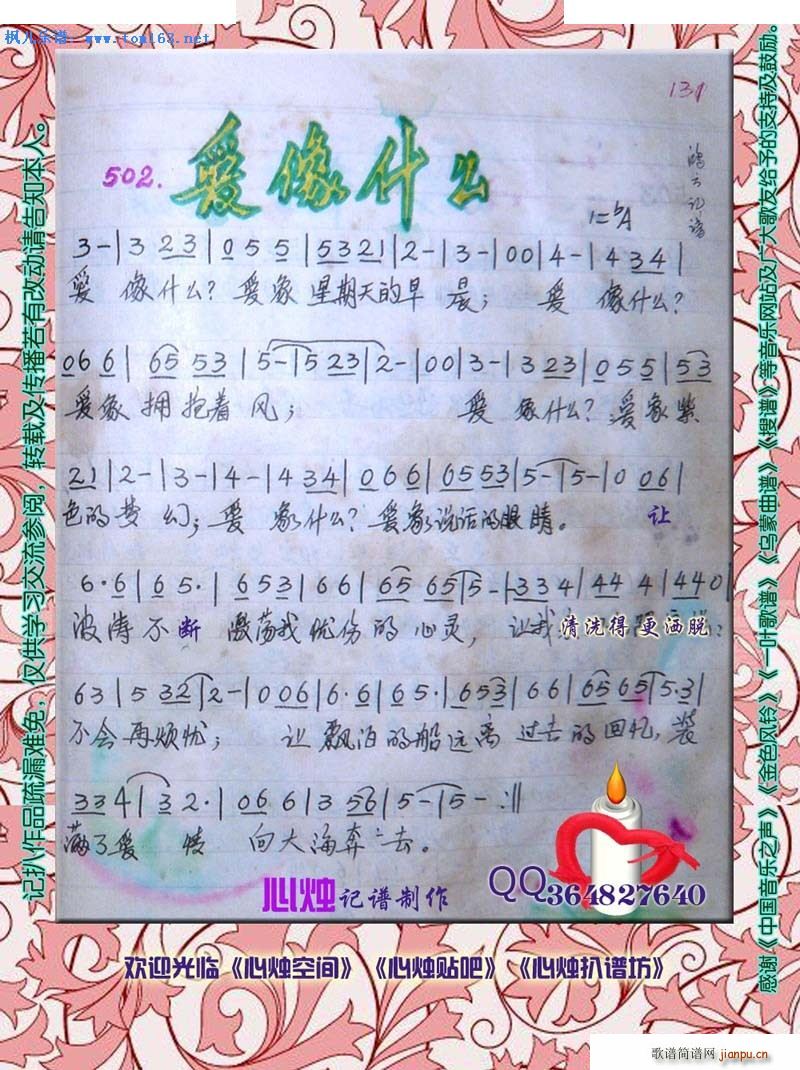 枫儿乐谱：www.tom163.net
131
502.爱像什么
1=♭A
3-|3 23|0 5 5|5321|2-|3-|00|4-|4 34|
爱 像什么? 爱象 星期天的早 晨; 爱 像什么?
06 6|65 53|5-|5 23|2-|00|3-|3 23|0 5 5|53
爱象 拥抱着 风; 爱 象什么? 爱象紫
21|2-|3-|4-|4 34|0 6 6|6553|5-|5-|0 06|
色的梦 幻; 爱 象什么? 爱象说话的眼睛。 让
6·6|6 5·|6 53|6 6|65 65|5-|33 4|44 4|440|
波涛不断 激荡我忧伤 的 心灵, 让我 清洗得更洒脱:
63|5 32|2-|0 06|6·6|65·|653|66|65 65|5·3|
不会再烦忧; 让 飘泊的船远离 过去的回忆, 装
33 4|3 2·|06 6|3 56|5-|5-:||
满了爱 情 向大海奔 去。
心烛记谱制作
QQ364827640
欢迎光临《心烛空间》《心烛贴吧》《心烛扒谱坊》
记扒作品疏漏难免，仅供学习交流参阅，转载及传播若有改动请告知本人。
感谢《中国音乐之声》《金色风铃》《一叶歌谱》《乌蒙曲谱》《搜谱》等音乐网站及广大歌友给予的支持及鼓励。
歌谱简谱网
jianpu.cn